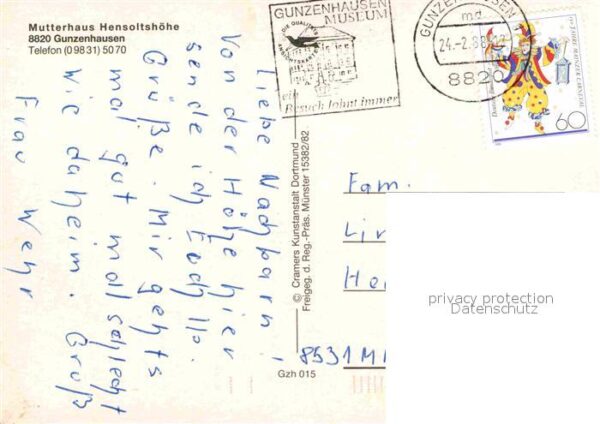 Mutterhaus Hensoltshöhe
8820 Gunzenhausen
Telefon (09831) 5070
GUNZENHAUSEN
MUSEUM
DIE QUALITÄTS
ANSICHTSKARTE
ein
Besuch lohnt immer
GUNZENHAUSEN 1
md
24.-2.88
8820
150 JAHRE MAINZER CARNEVAL
Deutsche Bundespost
60
Liebe Nachbarn!
Von der Höhe hier
sende ich Euch llo.
Grüße. Mir gehts
mal gut mal schlecht
wie daheim. Gruß
Frau Wehr
© Cramers Kunstanstalt Dortmund
Freigeg. d. Reg.-Präs. Münster 15382/82
Fam.
8531 M
Gzh 015
privacy protection
Datenschutz